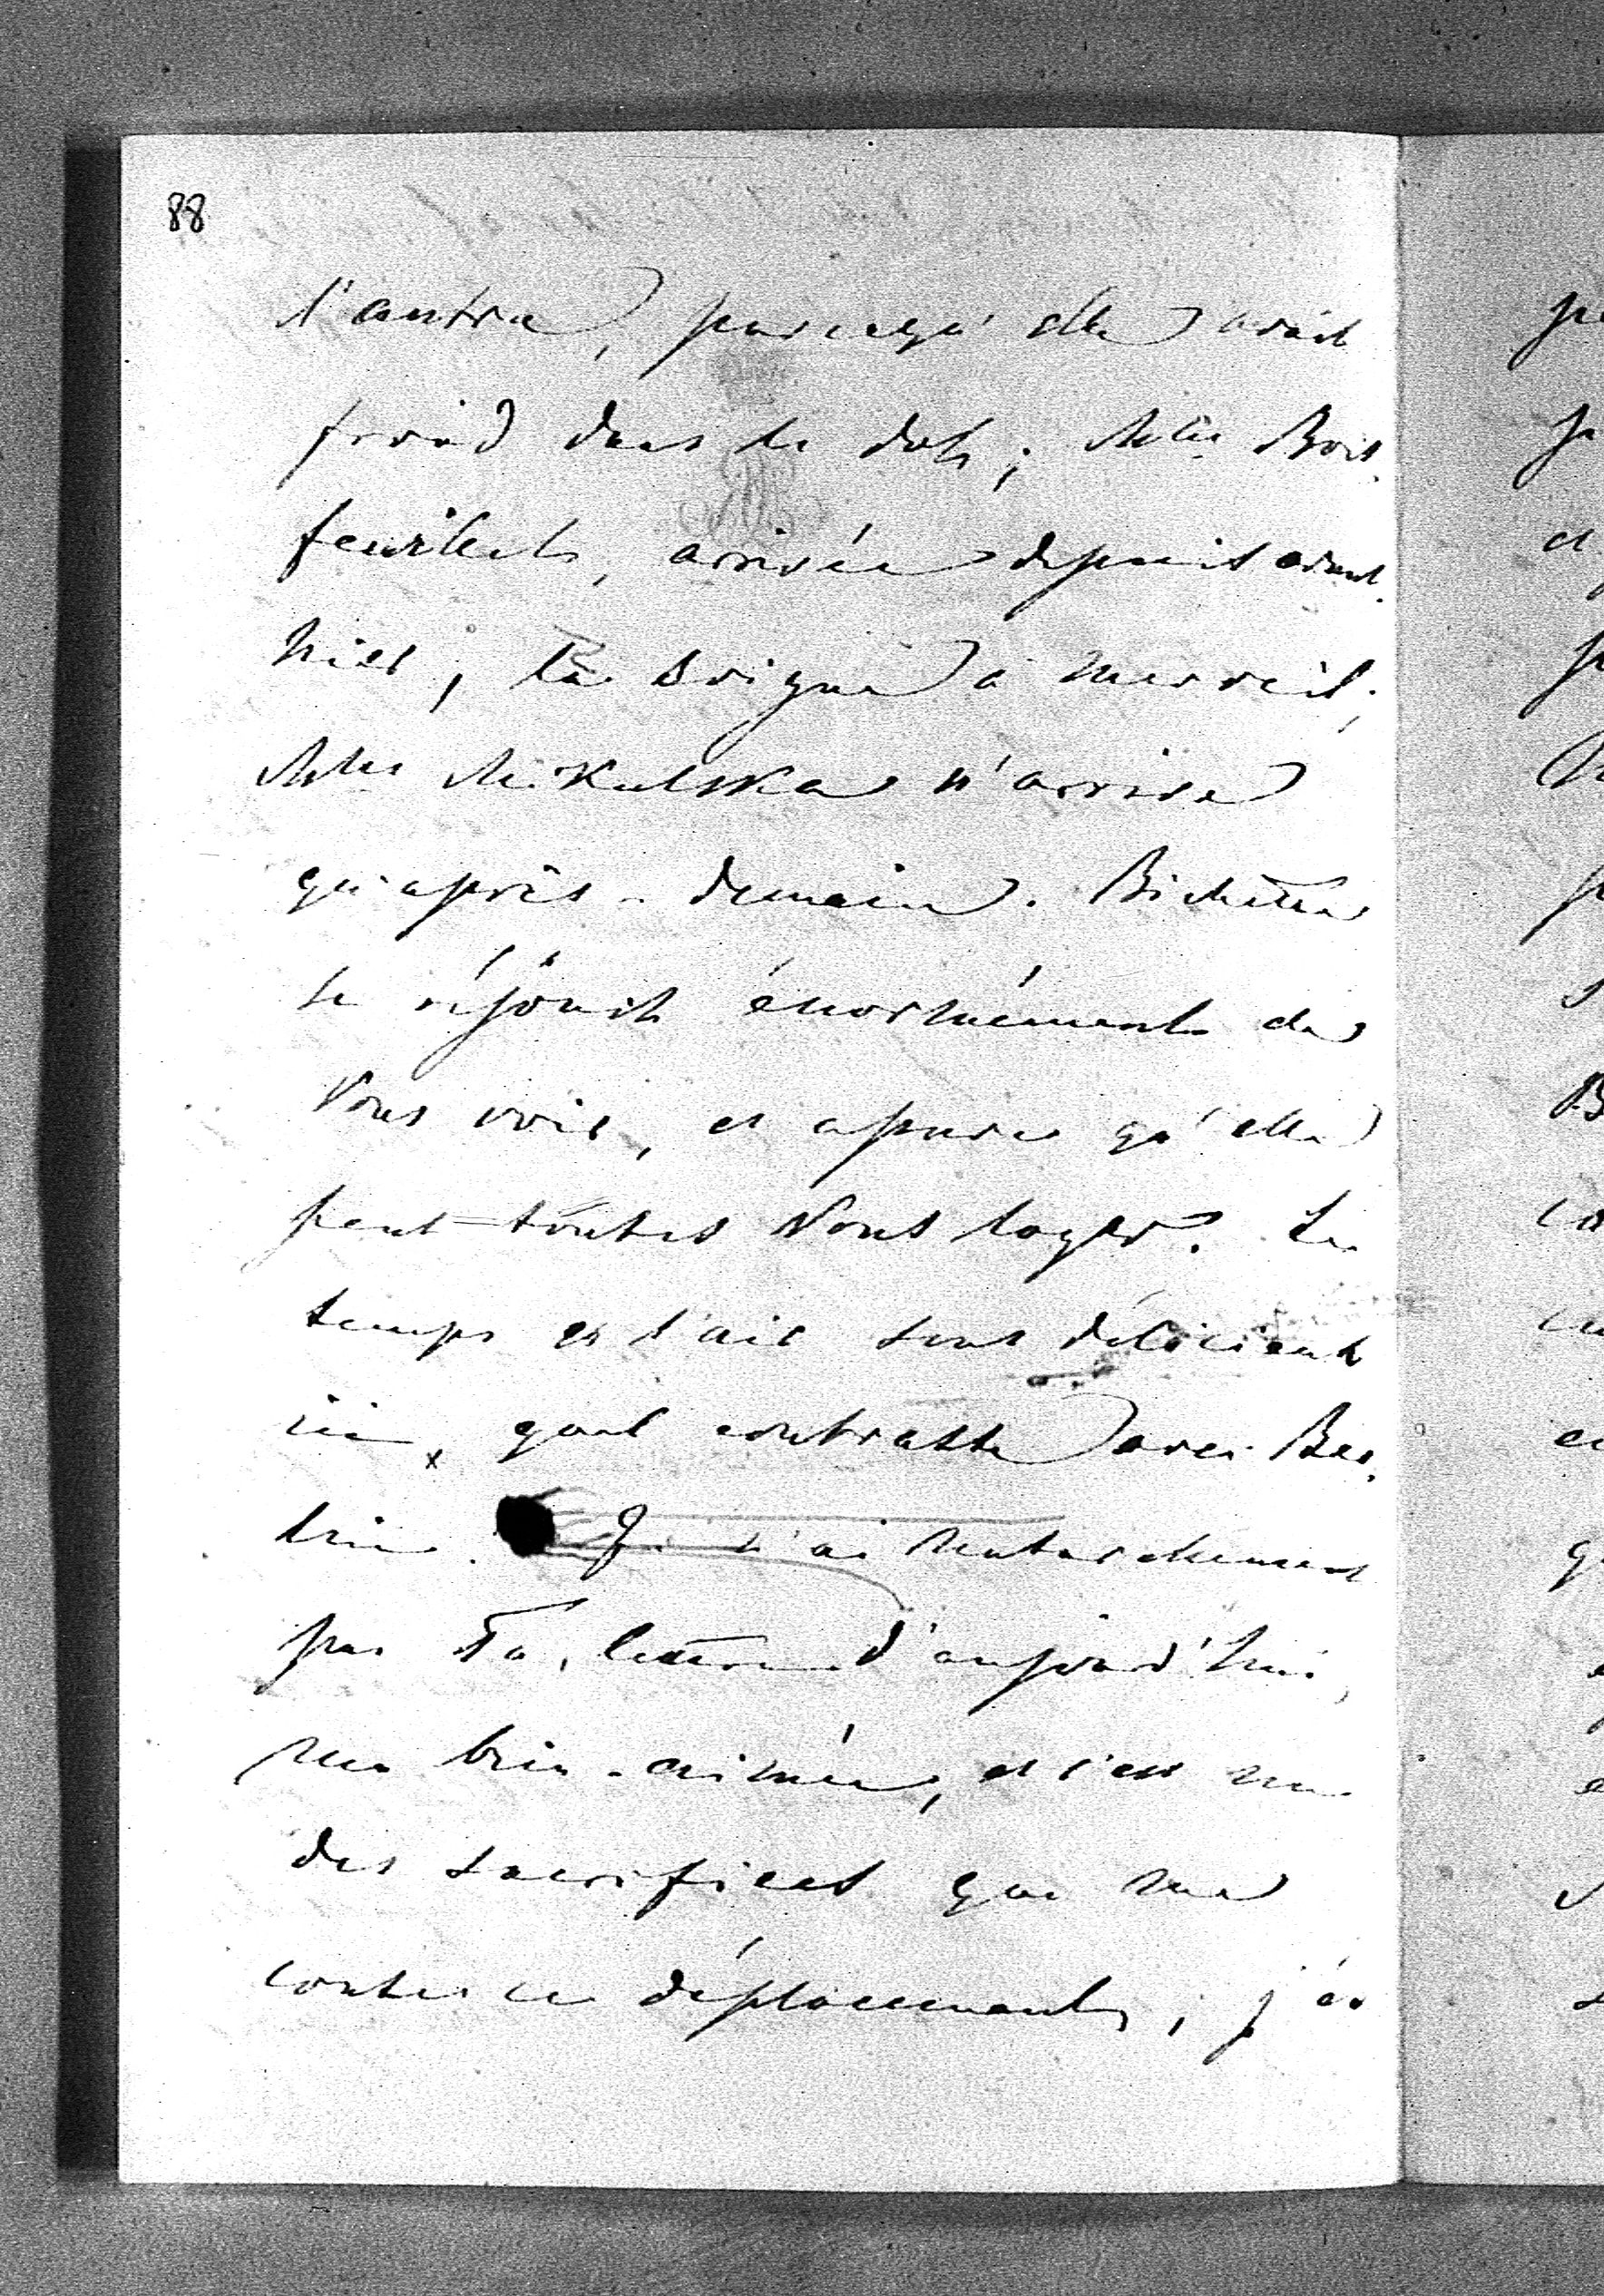 88
l'autre, parcequ'elle avait
froid dans le dos; Mlle Bois-
feuillet, arrivée depuis avant-
hier, la soigne à merveil;
Mlle Mikulska n'arrive
qu'après-demain. Bichette
se réjouit énormément de
Vous voir, et assure qu'elle
peut toutes Vous loger. Le
temps et l'air sont délicieux
ici, quel contraste avec Ber-
lin. Je n'ai naturellement
pas Ta lettre d'aujourd'hui,
ma bien-aimée, et c'est un
des sacrifices que me
coute ce déplacement, j'ai